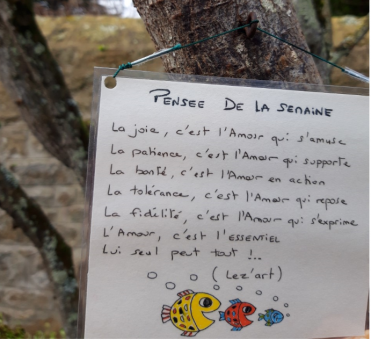 PENSEE DE LA SEMAINE
La joie, c'est l'Amour qui s'amuse
La patience, c'est l'Amour qui supporte
La bonté, c'est l'Amour en action
La tolérance, c'est l'Amour qui repose
La fidélité, c'est l'Amour qui s'exprime
L'Amour, c'est l'ESSENTIEL
Lui seul peut tout !..
(Lez'art)